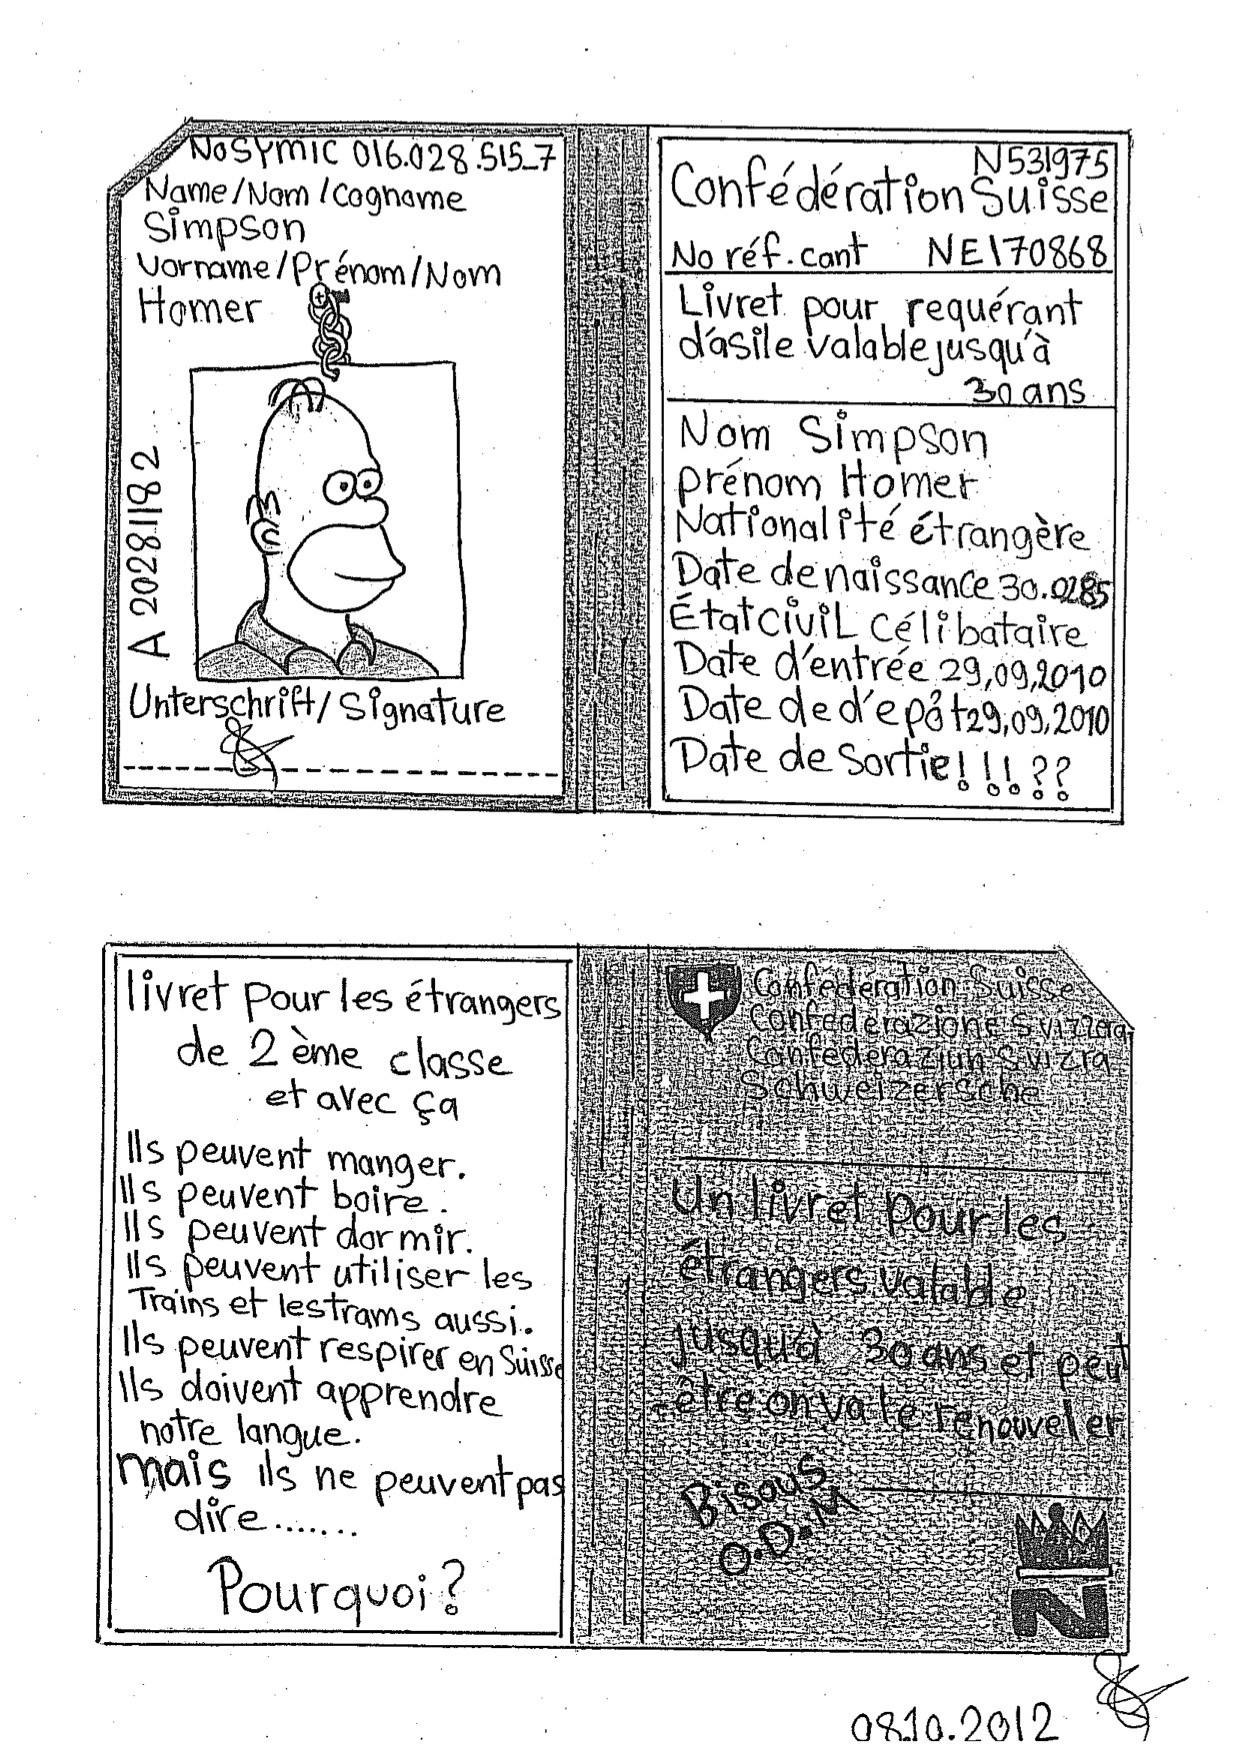 NoSYMIC 016.028.515_7
Name/Nom/Cognome
Simpson
Vorname/Prénom/Nom
Homer
A 2028.1182
Unterschrift/Signature
N531975
Confédération Suisse
No réf.cant NE170868
Livret pour requérant
d'asile valable jusqu'à
30 ans
Nom Simpson
prénom Homer
Nationalité étrangère
Date de naissance 30.0285
État civil célibataire
Date d'entrée 29,09,2010
Date de d'epôt 29,09,2010
Date de Sortie!!!??
livret pour les étrangers
de 2 ème classe
et avec ça
Ils peuvent manger.
Ils peuvent boire.
Ils peuvent dormir.
Ils peuvent utiliser les
Trains et les trams aussi.
Ils peuvent respirer en Suisse
Ils doivent apprendre
notre langue.
mais ils ne peuvent pas
dire.......
Pourquoi?
Confédération Suisse
Confederazione Svizzera
Confederaziun Svizra
Schweizersche
Un livret pour les
étrangers valable
jusqu'à 30 ans et peut
-être on va le renouveler
Bisous
O.D.M
N
08.10.2012